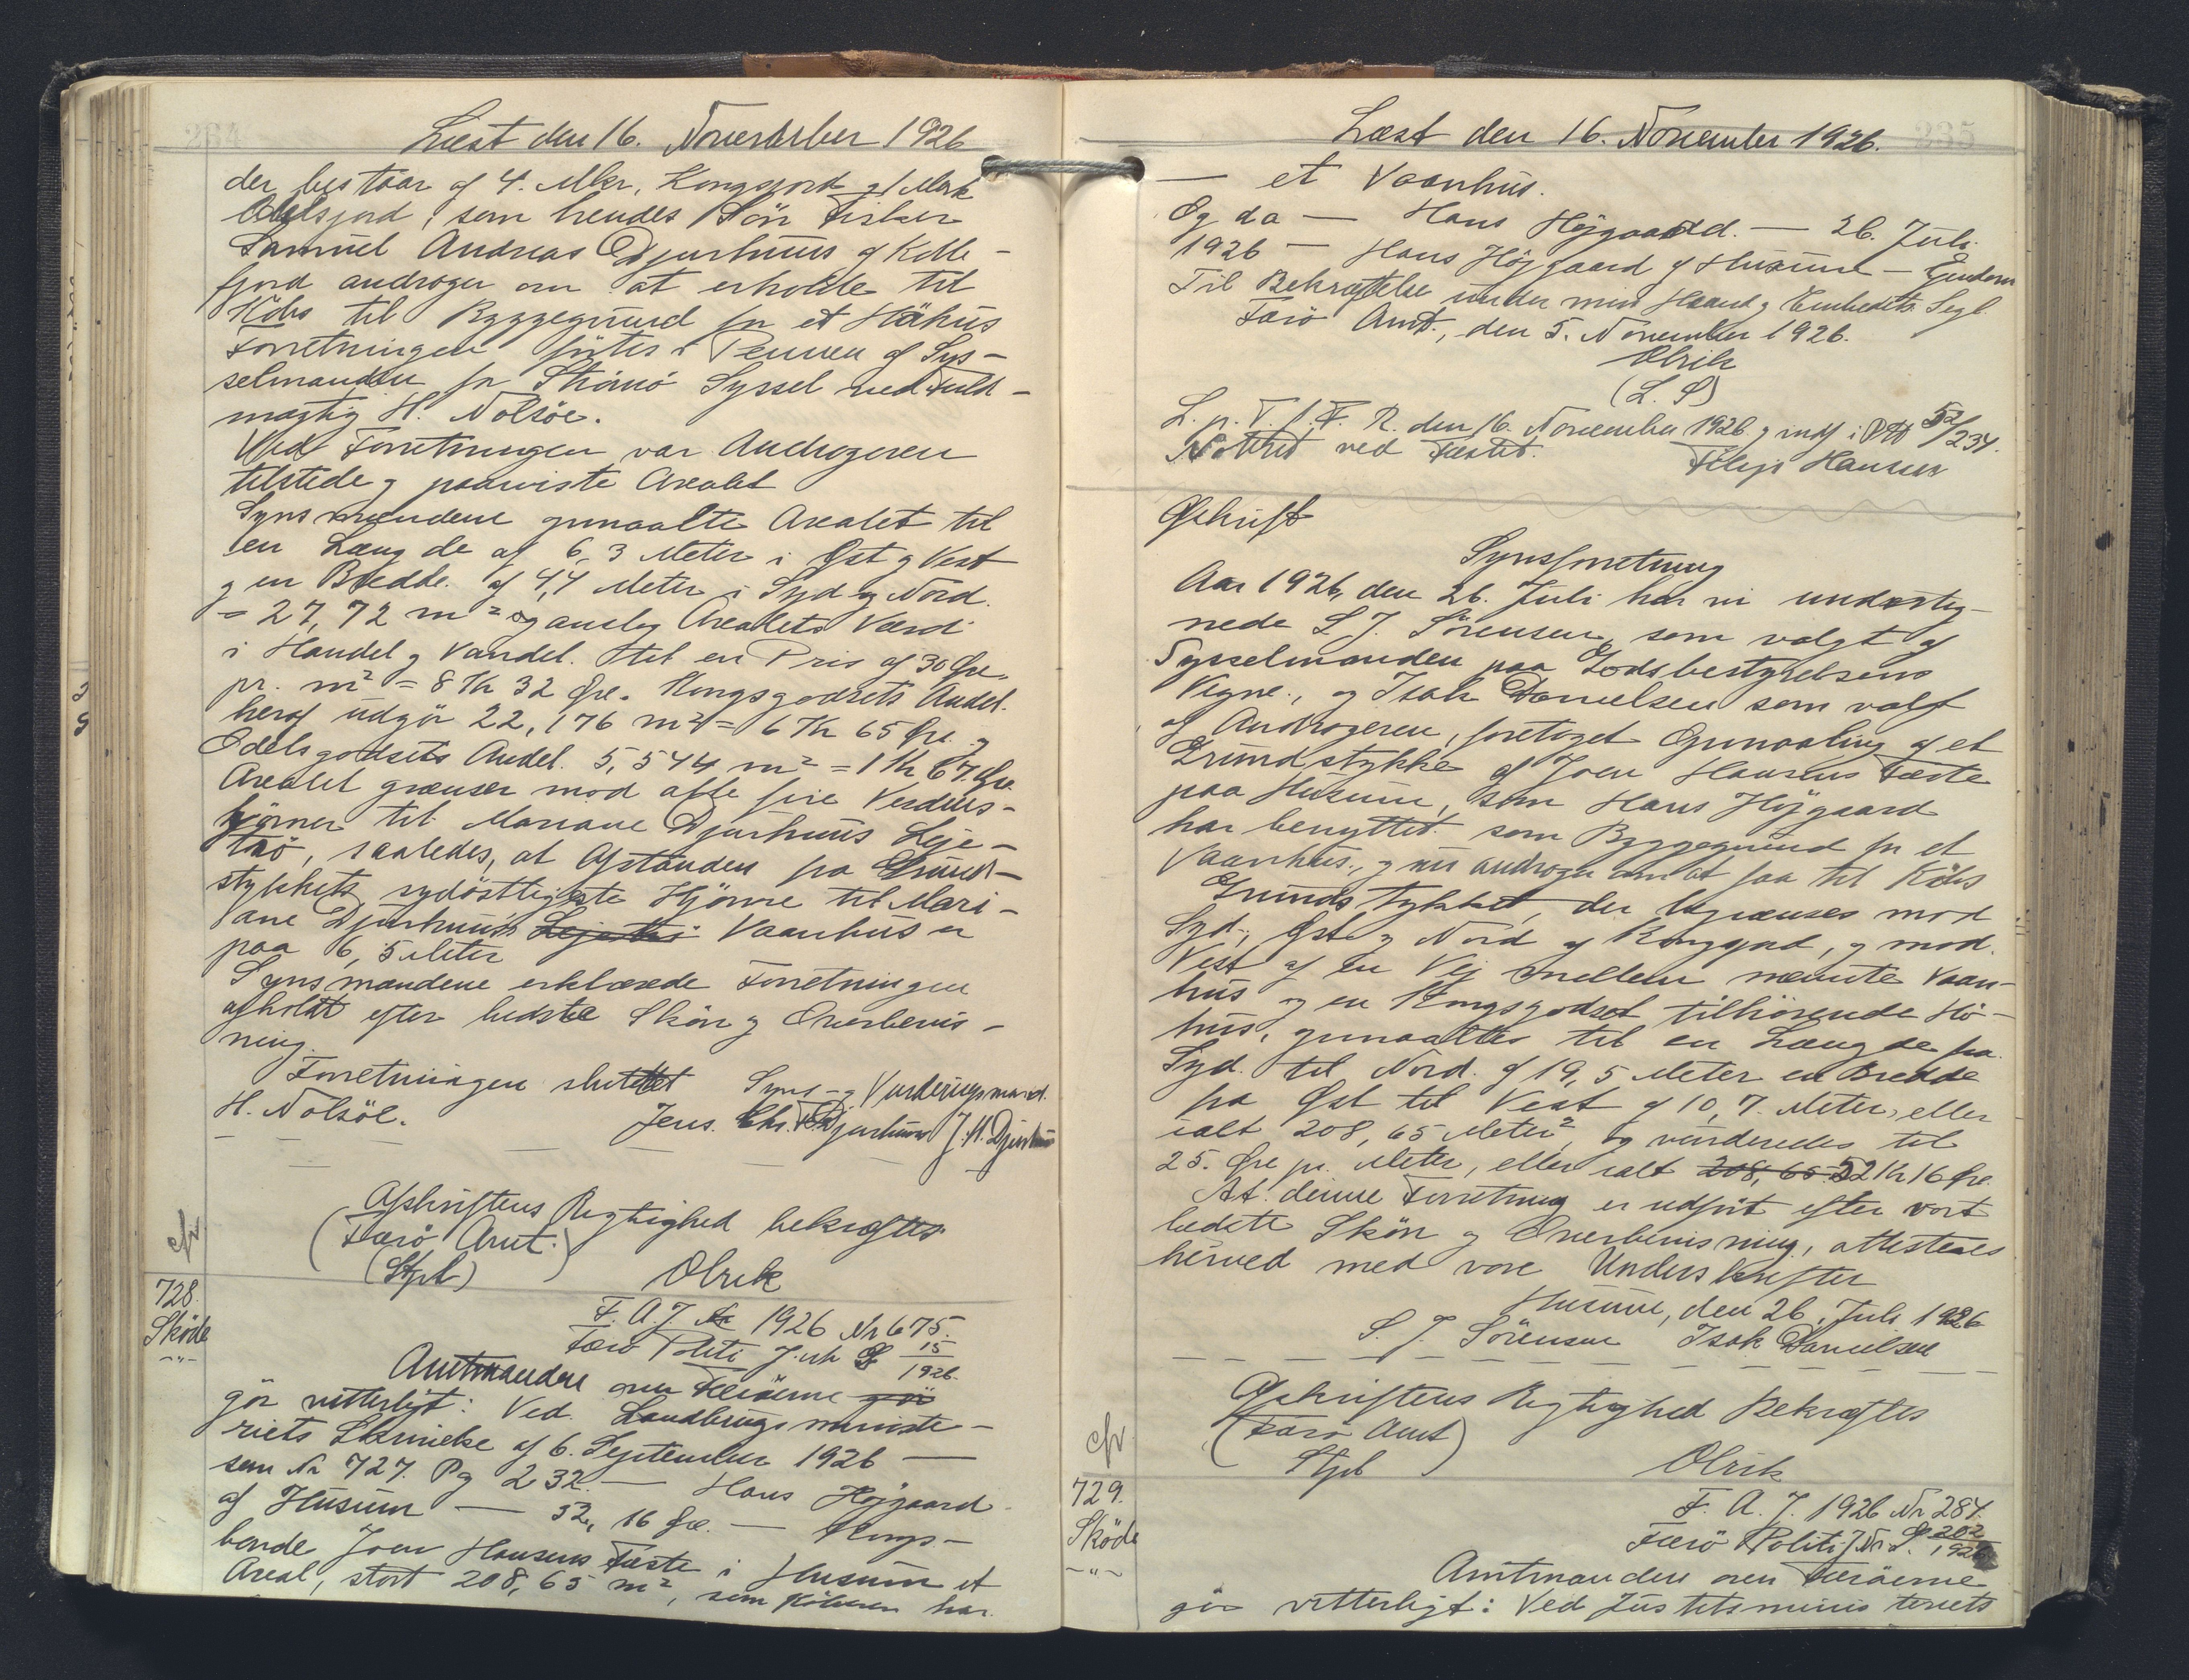 234
Læst den 16. November 1926
der bestaar af 4. Mkr. Kongsjord og 1 Mark
Odelsjord, som hendes Sön Fisker
Samuel Andreas Djurhuus af Kolle-
fjord androger om at erholde til
Köbs til Byggegrund for et Höhus
Forretningen förtes i Pennen af Sys-
selmanden for Strömö Syssel ved Fuld-
mægtig H. Nolsöe.
Ved Forretningen var Androgeren
tilstede og paaviste Arealet
Synsmændene opmaalte Arealet til
en Længde af 6,3 Meter i Øst og Vest
og en Bredde af 4,4 Meter i Syd og Nord.
= 27,72 m² og ansleg Arealets Værdi
i Handel og Vandel til en Pris af 30 Øre.
pr. m² = 8 Kr 32 Øre. Kongsgodsets Andel.
heraf udgör 22,176 m² = 6 Kr 65 Øre og
Odelsgodsets Andel. 5,544 m² = 1 Kr 67 Øre
Arealet grænser mod alle fire Verdens-
hjörner til Mariane Djurhuus Leje-
trö, saaledes, at Afstanden fra Grund-
stykkets sydöstligste Hjörne til Mari-
ane Djurhuus's Lejetrö Vaanhus er
paa 6,5 Meter
Synsmændene erklærede Forretningen
afholdt efter bedste Skön og Overbevis-
ning.
Forretningen sluttet Syns- og Vurderingsmænd.
H. Nolsöe. Jens. Chr. Djurhuus J. H. Djurhuus
Afskriftens Rigtighed bekræftes
(Færö Amt.)
(Stpl) Olrik
cfr
728.
Sköde
-"-
F. A. J. 1926 Nr 675.
Færö Politi J. nr S 15/1926.
Amtmanden over Færöerne gör
gör vitterligt: Ved Landbrugsministe-
riets Skrivelse af 6. September 1926 —
som Nr 727. Pg 232. — Hans Højgaard
af Husum — 52, 16 Øre. — Kongs-
bonde Joen Hansens Fæste i Husum et
Areal, stort 208,65 m², som Köberen har.
235
Læst den 16. November 1926.
— et Vaanhus.
Og da — Hans Højgaard. — 26. Juli
1926 — Hans Höjgaard af Husum — Ejendom
Til Bekræftelse under min Haand og Embedets Segl.
Færö Amt., den 5. November 1926.
Olrik
(L. S)
L. p. T. f. F. R. den 16. November 1926 og indf i Ptb 52/234.
Noteret ved Fæstet. Filip Hansen
Afskrift
Synsforretning
Aar 1926, den 26. Juli har vi underteg-
nede S. J. Sörensen, som valgt af
Sysselmanden paa Godsbestyrelsens
Vegne., og Isak Danielsen som valgt
af Androgeren, foretaget Opmaaling af et
Grundstykke af Joen Hansens Fæste
paa Husum, som Hans Höjgaard
har benyttet som Byggegrund for et
Vaanhus., og nu androger om at faa til Köbs
Grundstykket, der begrænses mod
Syd-, Øst og Nord af Kongsjord, og mod
Vest af en Vej mellem nævnte Vaan-
hus og en Kongsgodset tilhörende Hö-
hus, opmaaltes til en Længde fra
Syd. til Nord. af 19,5 Meter en Bredde
fra Øst til Vest af 10,7. Meter, eller
ialt 208,65 Meter², og vurderedes til
25. Øre pr. Meter, eller ialt 208,65 52 Kr 16 Øre.
At denne Forretning er udfört efter vort
bedste Skön og Overbevisning, attesteres
herved med vore Underskrifter
Husum, den 26. Juli 1926
S. J. Sörensen Isak Danielsen
Afskriftens Rigtighed Bekræftes
(Færö Amt)
Stpl Olrik
cfr.
729.
Sköde
-"-
F. A. J. 1926 Nr 287.
Færö Politi J Nr S. 202/1926
Amtmanden over Færöerne
gör vitterligt: Ved Justitsministeriets